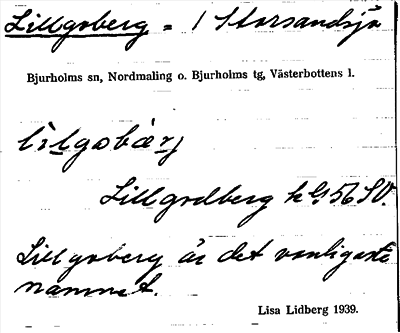 Lillgoberg = 1 Storsandsjö
Bjurholms sn, Nordmaling o. Bjurholms tg, Västerbottens l.
lilgobærj
Lillgodberg kbl 56 SV.
Lillgoberg är det vanligaste
namnet.
Lisa Lidberg 1939.